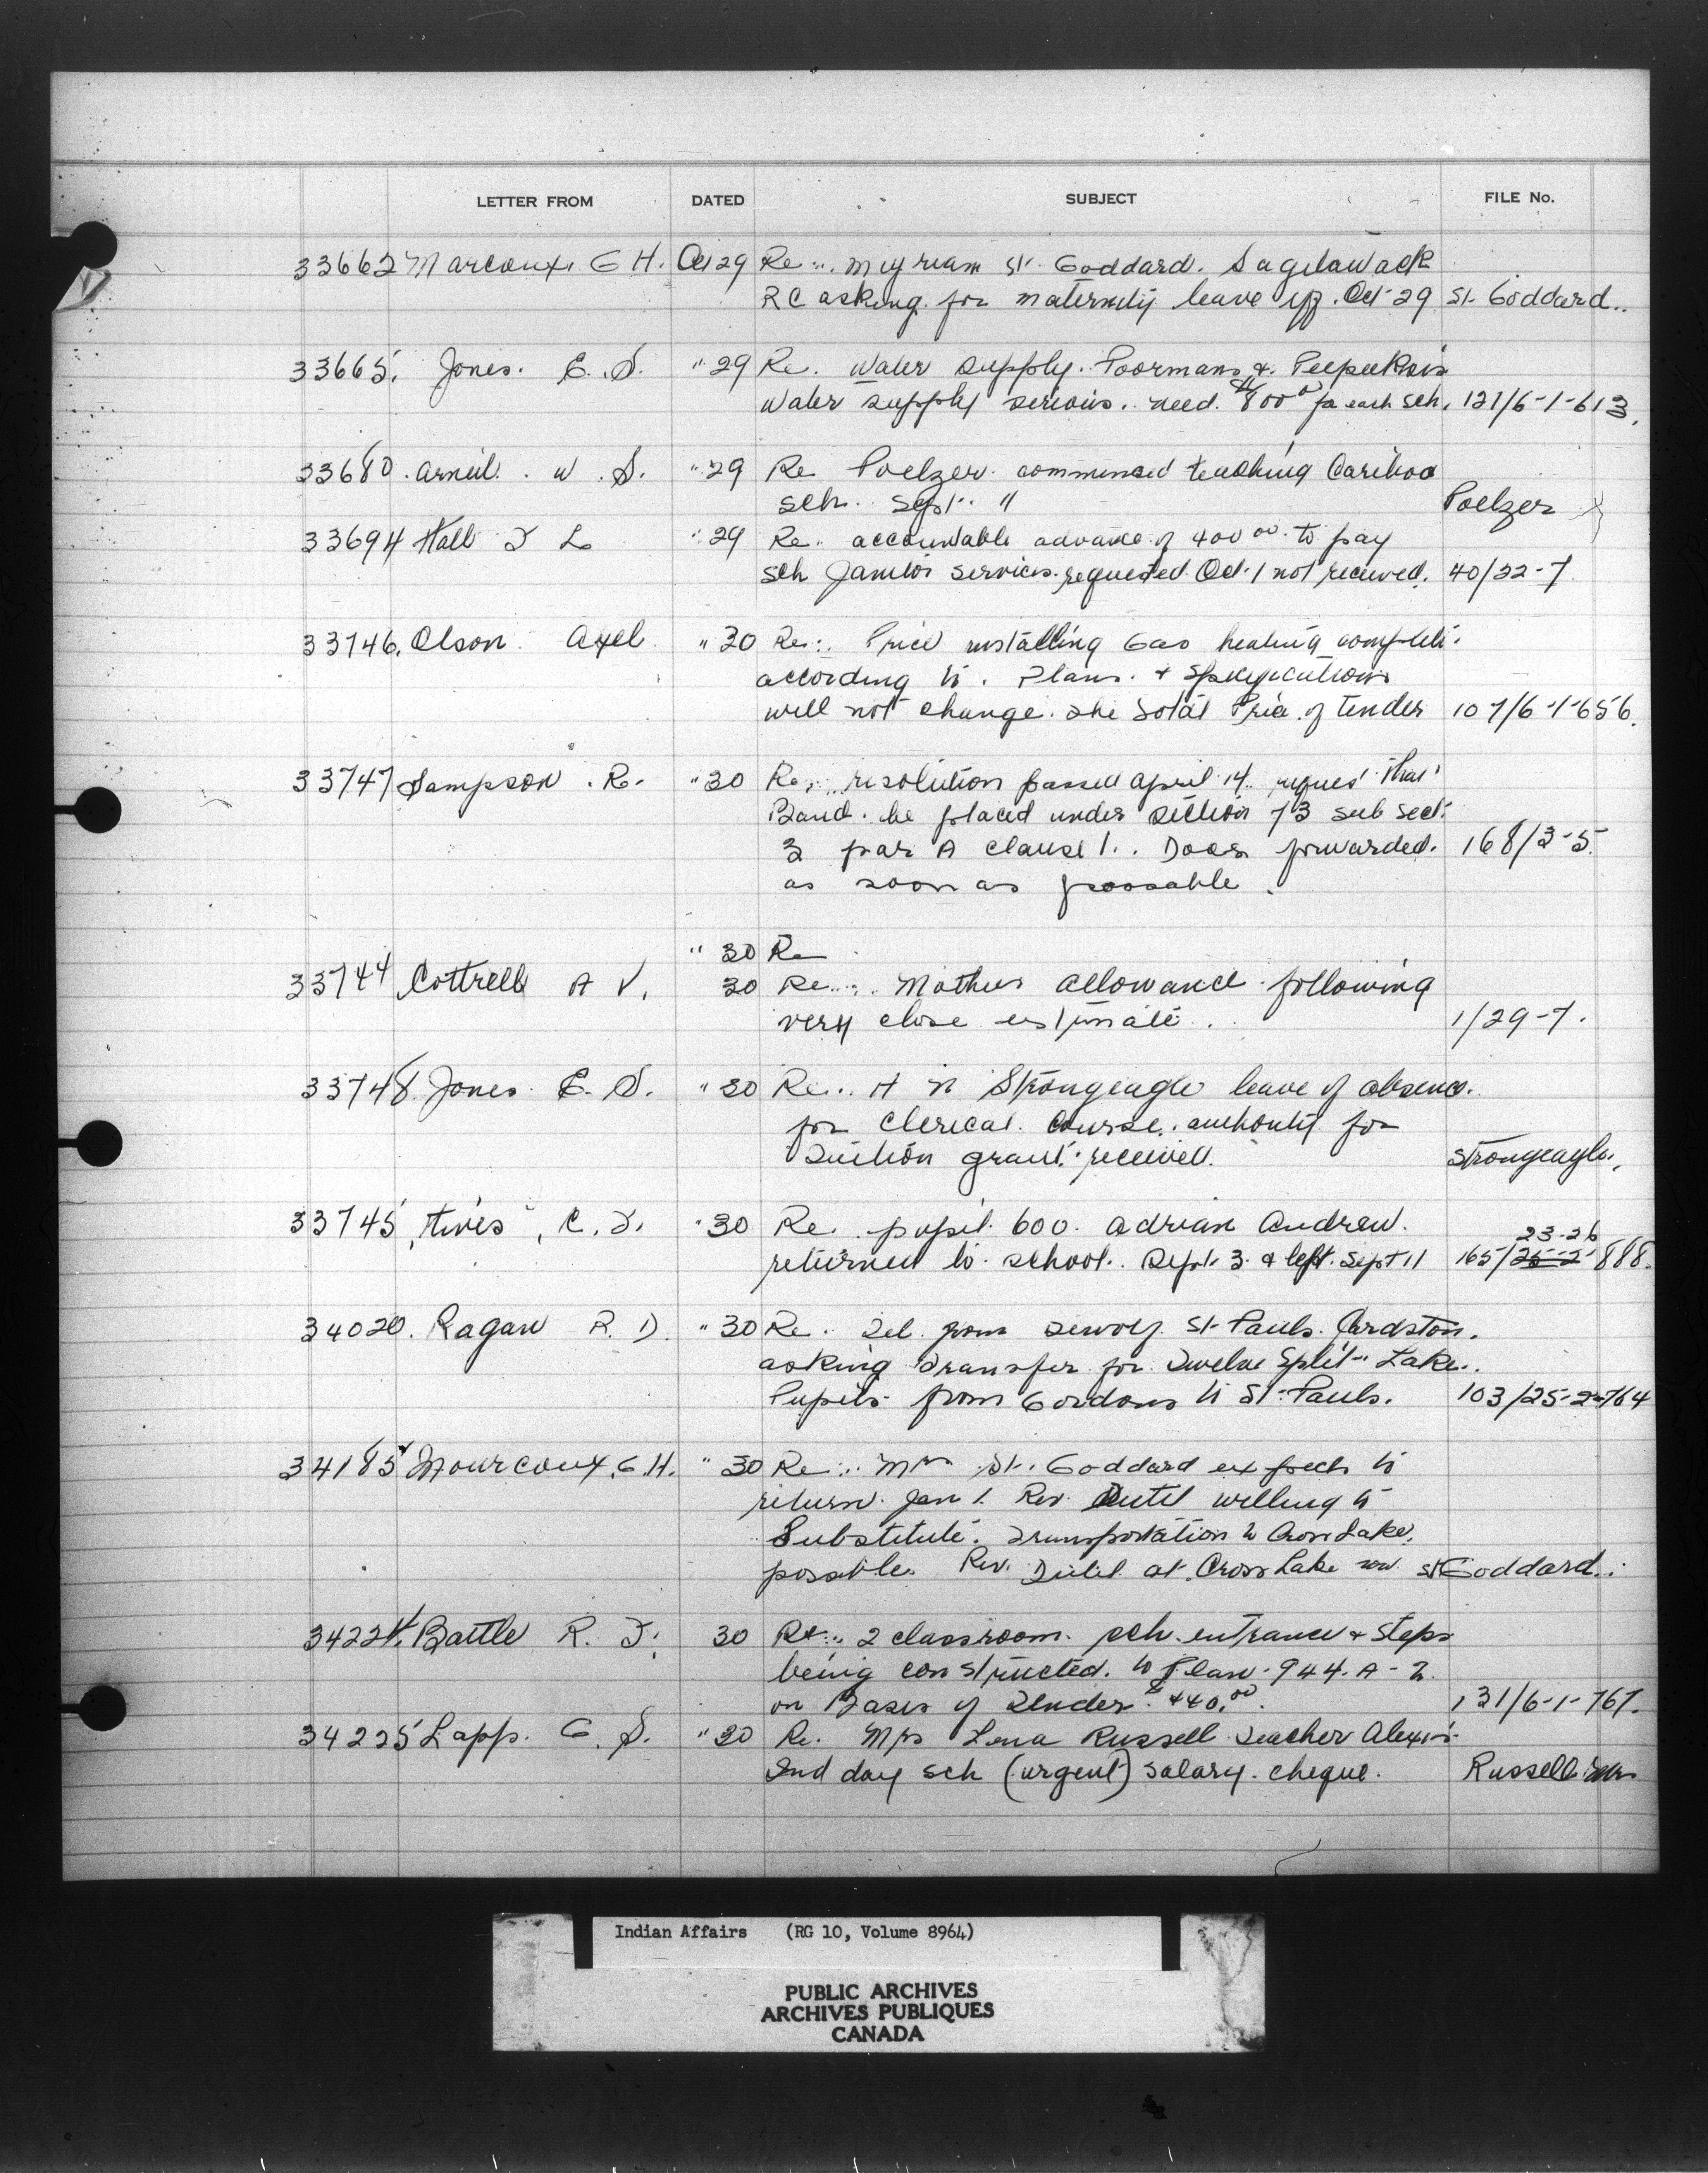 LETTER FROM DATED SUBJECT FILE No.
33662 Marcoux. G H. Oct 29 Re... Myriam St. Goddard. Sagitawack
RC asking for maternity leave eff. Oct 29 St. Goddard..
33665. Jones. E. S. " 29 Re. Water supply. Poormans & Peepeeksis
Water supply serious. need. $800 00 for each sch. 121/6-1-613.
33680. Arneil. W. S. " 29 Re Poelzer commenced teaching Cariboo
sch. Sept. 11 Poelzer
33694 Hall L " 29 Re. accountable advance of 400 00 to pay
sch Janitor services requested Oct. 1 not received. 40/22-7
33746. Olson. Axel " 30 Re: Price installing Gas heating complete
according to. Plans. & Specifications
will not change. the Total Price of tender 107/6-1-656.
33747 Sampson. R. " 30 Re. resolution passed April 14. request that
Band. be placed under section 73 sub sect.
2 par A clause 1. Docs forwarded. 168/3-5.
as soon as possable.
" 30 Re
33744 Cottrell A V. 30 Re... Mothers allowance following
very close estimate. 1/29-7.
33748. Jones. E. S. " 30 Re.. H N Strongeagle leave of absence.
for Clerical Course. authority for
Tuition grant. received. Strongeagle.
33745 C. " 30 Re. pupil 600. Adrian Andrew.
23-26
returned to school.. Sept. 3 & left. Sept 11 165/25-2 888.
34020. Ragan R. D. " 30 Re. Tel. from St. Pauls. Cardston.
asking Transfer for Twelve Split Lake..
Pupils from Gordons to St Pauls. 103/25-2-764
34185 Mourcoux. G. H. " 30 Re... Mrs St. Goddard expects to
return. Jan 1. Rev. willing to
Substitute. Transportation to Cross Lake.
possible. Rev. at Cross Lake now St Goddard.
34224. Battle R. F. 30 Re... 2 classroom. sch. entrance & steps
being constructed. to Plan. 944. A-2
on Basis of Tender $440.00. 131/6-1-767.
34225 Lapp. G. S. " 30 Re. Mrs Lena Russell Teacher Alexis
Ind day sch (urgent) Salary. cheque. Russell Mrs
Indian Affairs (RG 10, Volume 8964)
PUBLIC ARCHIVES
ARCHIVES PUBLIQUES
CANADA